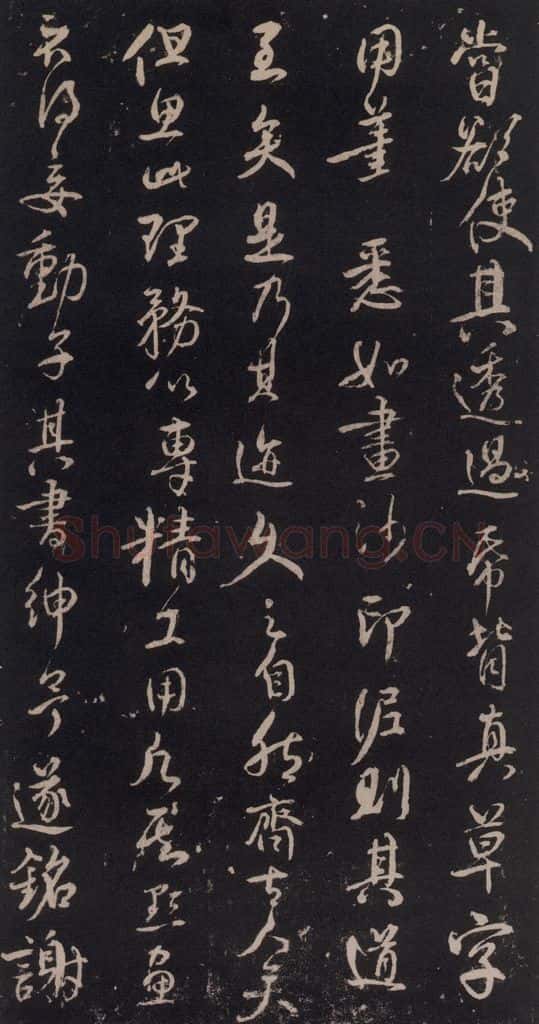 嘗欲使其透過帋背真草字
用筆 悉如畫沙印泥則其道
至矣是乃其迹久之自然齊古人矣
但思此理務以專精工用其點畫
不得妄動子其書紳予遂銘謝
Shufawang.CN